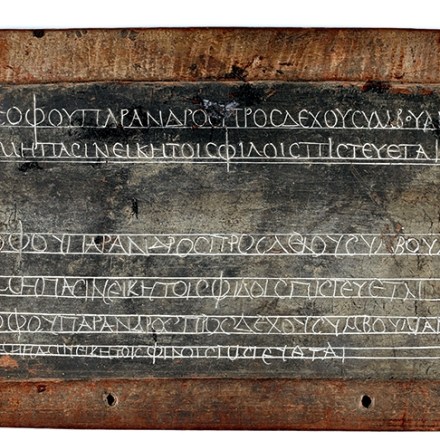 CΟΦΟΥΠΑΡΑΝΔΡΟCΠΡΟCΔΕΧΟΥCΥΜΒΟΥΛΙ
ΜΗΠΑCΙΝΕΙΚΗΤΟΙCΦΙΛΟΙCΠΙCΤΕΥΕΤΑΙ
ΟΦΟΥΠΑΡΑΝΔΡΟCΠΡΟCΔΕΧΟΥCΥΜΒΟΥΛ
ΜΗΠΑCΙΝΕΙΚΗΤΟΙCΦΙΛΟΙCΠΙCΤΕΥΕΤΑΙ
ΟΦΟΥΠΑΡΑΝΔΡΟCΠΡΟCΔΕΧΟΥCΥΜΒΟΥΛΙΑ
ΜΗΠΑCΙΝΕΙΚΗΤΟΙCΦΙΛΟΙCΠΙCΤΕΥΕΤΑΙ